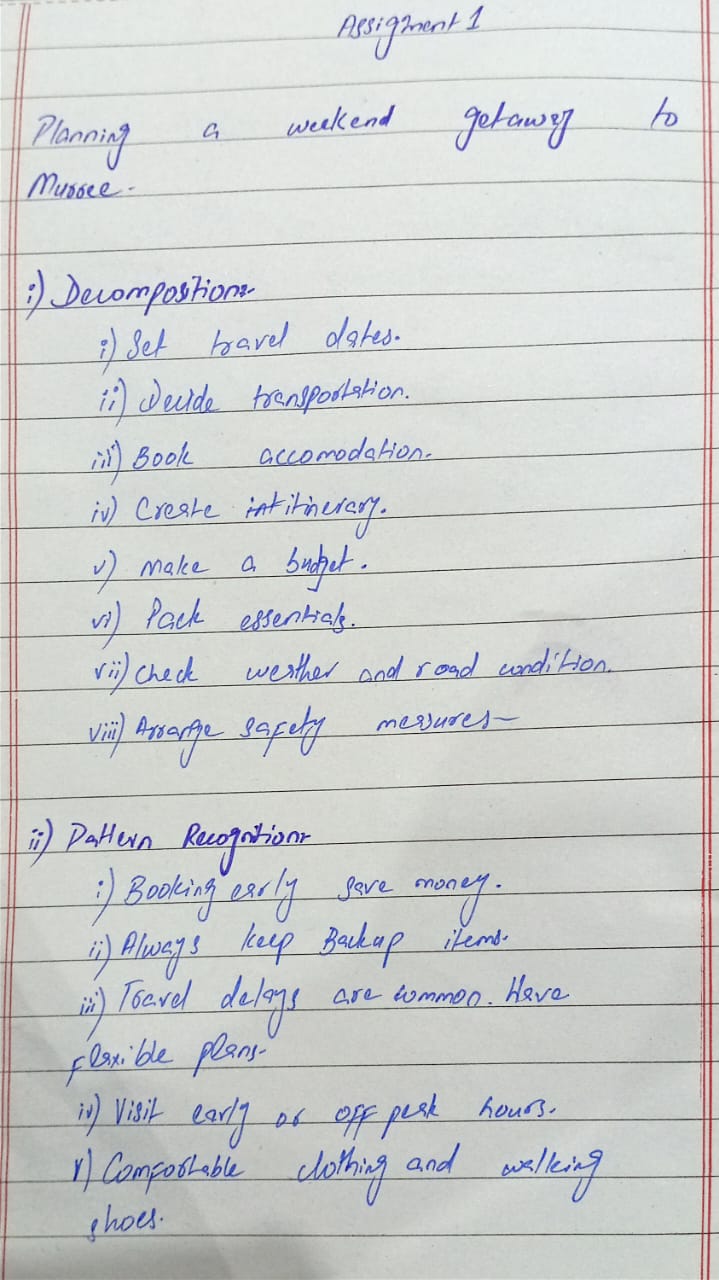 Assigment 1
Planning a weekend getaway to
Murree.
i) Decomposition:-
i) Set travel dates.
ii) Decide transportation.
iii) Book accomodation.
iv) Create itinerary.
v) Make a budget.
vi) Pack essentials.
vii) Check weather and road condition.
viii) Arrange safety measures-
ii) Pattern Recognition:-
i) Booking early save money.
ii) Always keep Backup items.
iii) Travel delays are common. Have
flexible plans.
iv) Visit early or off peak hours.
v) Comfortable clothing and walking
shoes.